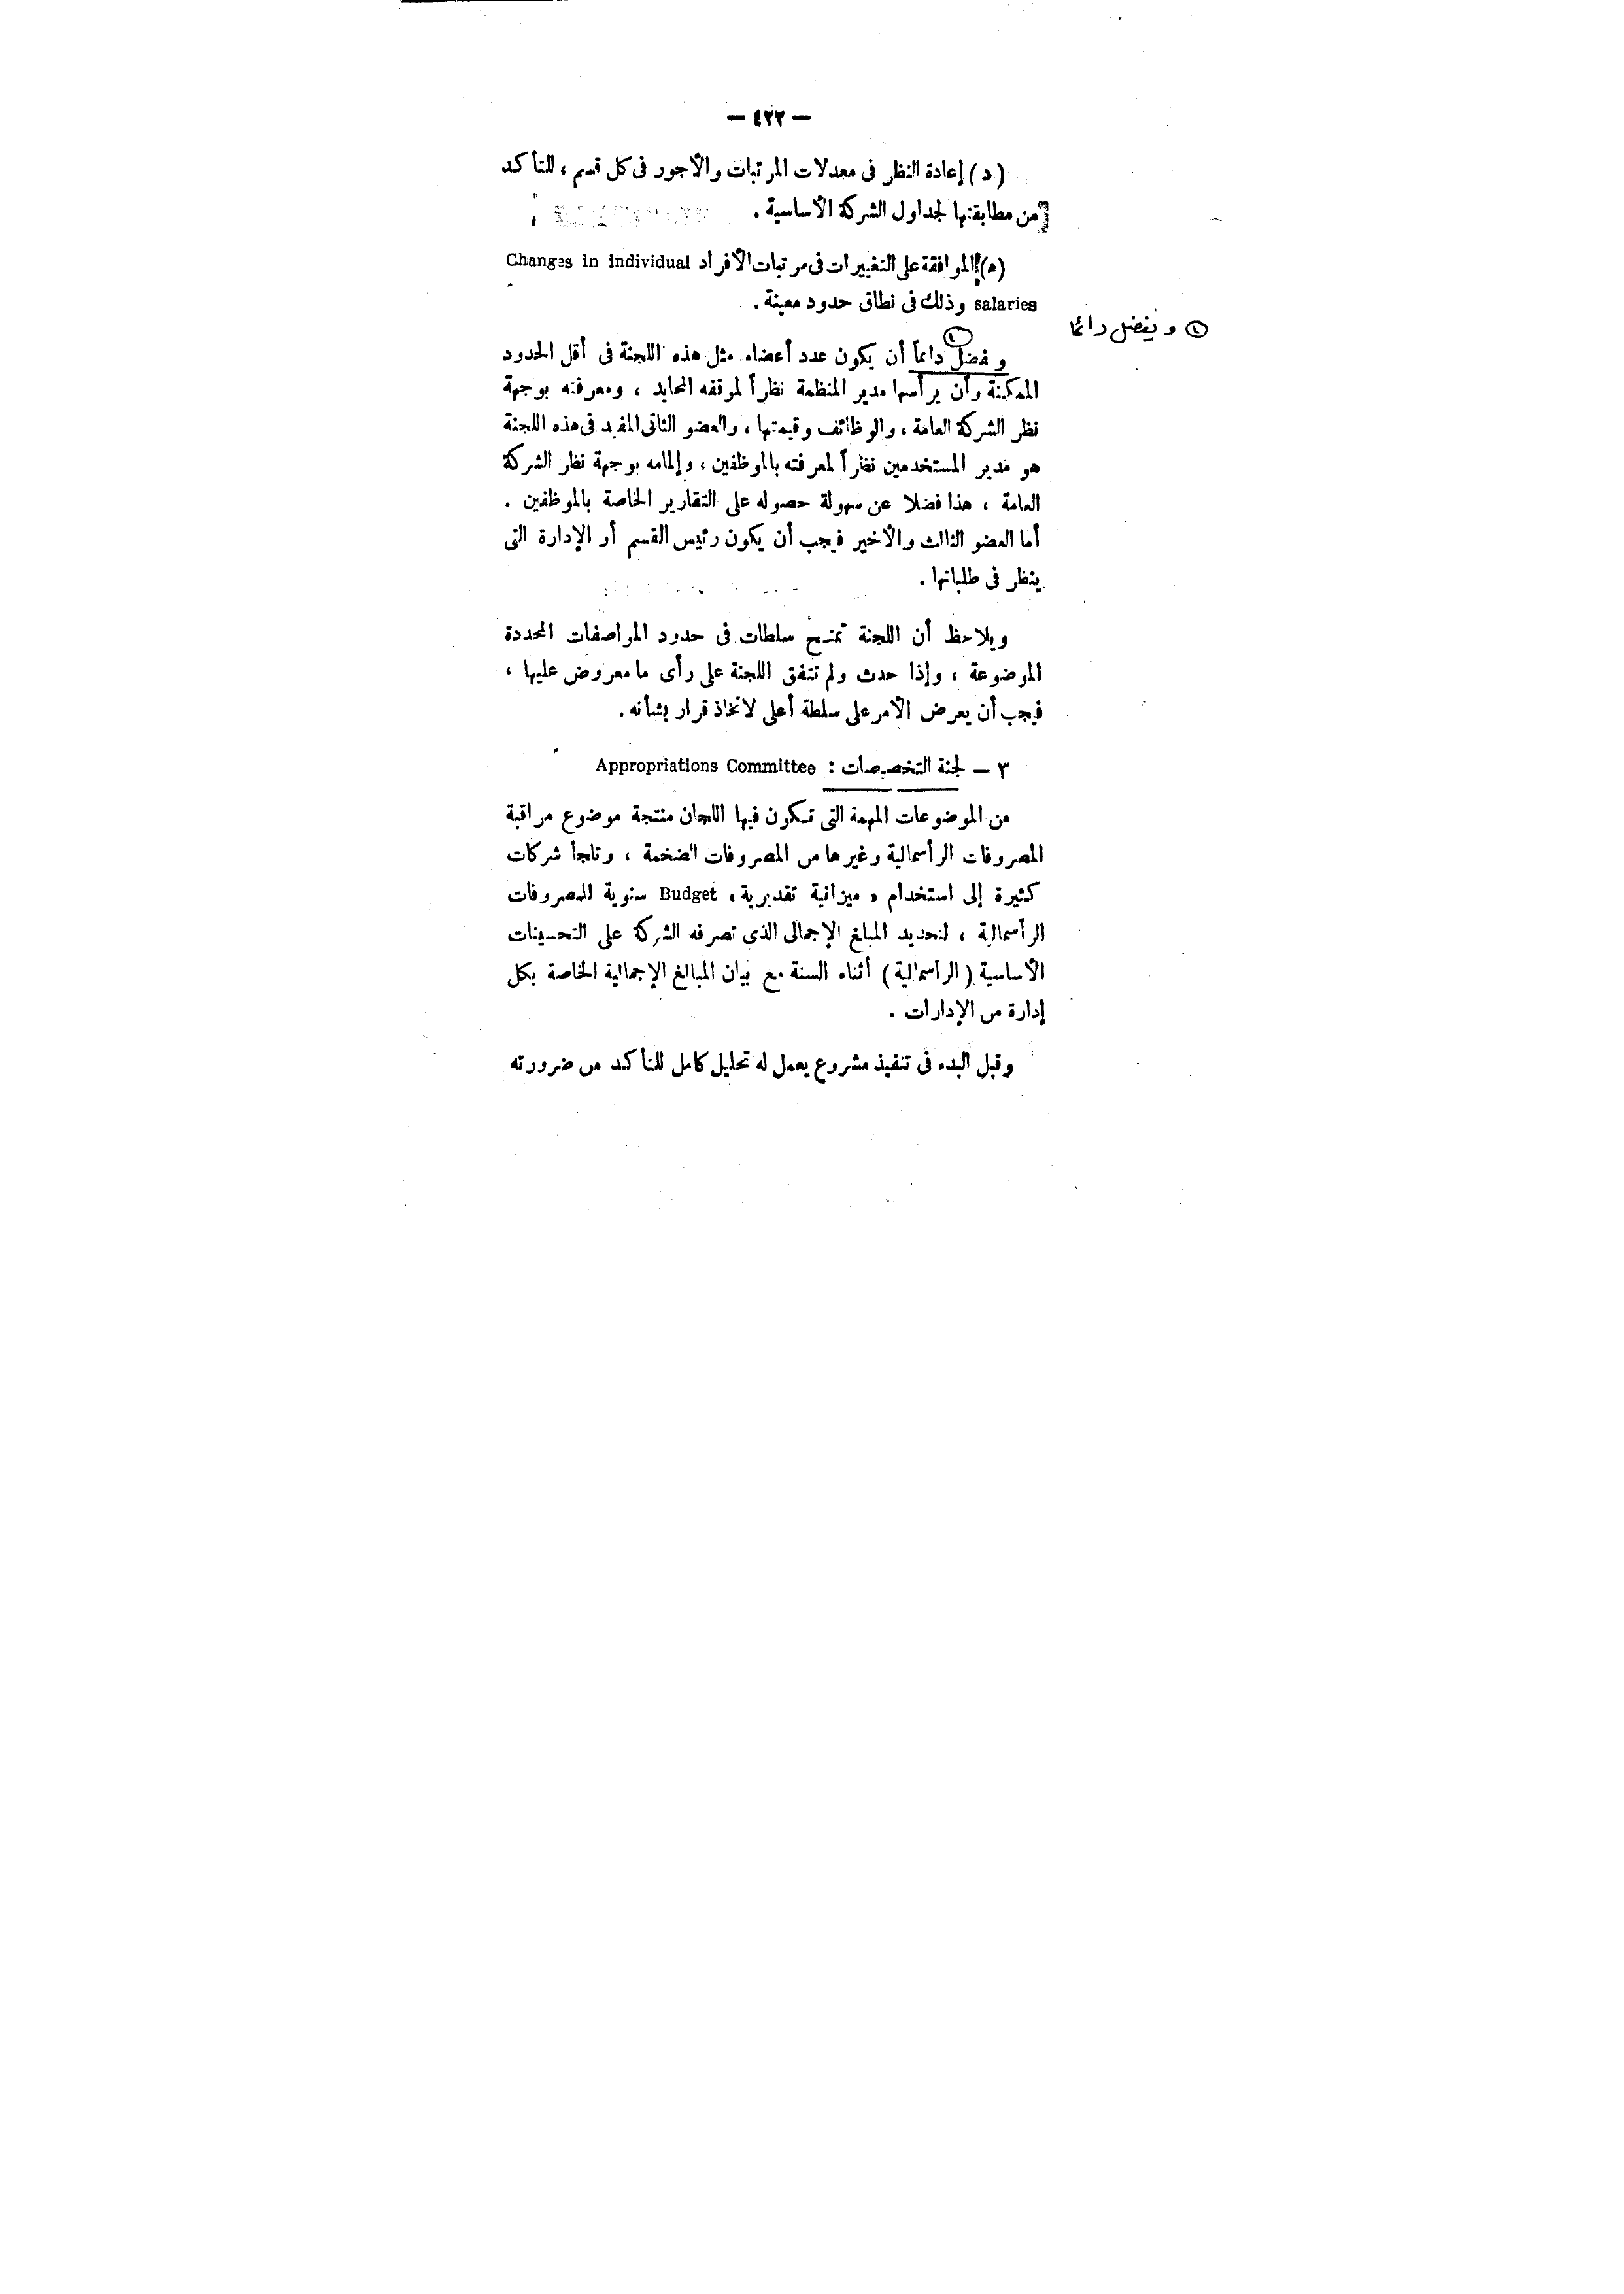 — ٤٢٢ —
(د) إعادة النظر فى معدلات المرتبات والأجور فى كل قسم ، للتأكد
من مطابقتها لجداول الشركة الأساسية .
(ه) الموافقة على التغييرات فى مرتبات الأفراد Changes in individual
salaries وذلك فى نطاق حدود معينة .
① ويفضل دائما
و فضل دائماً أن يكون عدد أعضاء مثل هذه اللجنة فى أقل الحدود
الممكنة وأن يرأسها مدير المنظمة نظراً لموقفه المحايد ، ومعرفته بوجهة
نظر الشركة العامة ، والوظائف وقيمتها ، والعضو الثانى المفيد فى هذه اللجنة
هو مدير المستخدمين نظراً لمعرفته بالموظفين ، وإلمامه بوجهة نظر الشركة
العامة ، هذا فضلا عن سهولة حصوله على التقارير الخاصة بالموظفين .
أما العضو الثالث والأخير فيجب أن يكون رئيس القسم أو الإدارة التى
ينظر فى طلباتها .
ويلاحظ أن اللجنة تمنح سلطات فى حدود المواصفات المحددة
الموضوعة ، وإذا حدث ولم تتفق اللجنة على رأى ما معروض عليها ،
فيجب أن يعرض الأمر على سلطة أعلى لاتخاذ قرار بشأنه .
٣ — لجنة التخصيصات : Appropriations Committee
من الموضوعات المهمة التى تكون فيها اللجان منتجة موضوع مراقبة
المصروفات الرأسمالية وغيرها من المصروفات الضخمة ، وتلجأ شركات
كثيرة إلى استخدام « ميزانية تقديرية » Budget سنوية للمصروفات
الرأسمالية ، لتحديد المبلغ الإجمالى الذى تصرفه الشركة على التحسينات
الأساسية (الرأسمالية) أثناء السنة مع بيان المبالغ الإجمالية الخاصة بكل
إدارة من الإدارات .
وقبل البدء فى تنفيذ مشروع يعمل له تحليل كامل للتأكد من ضرورته